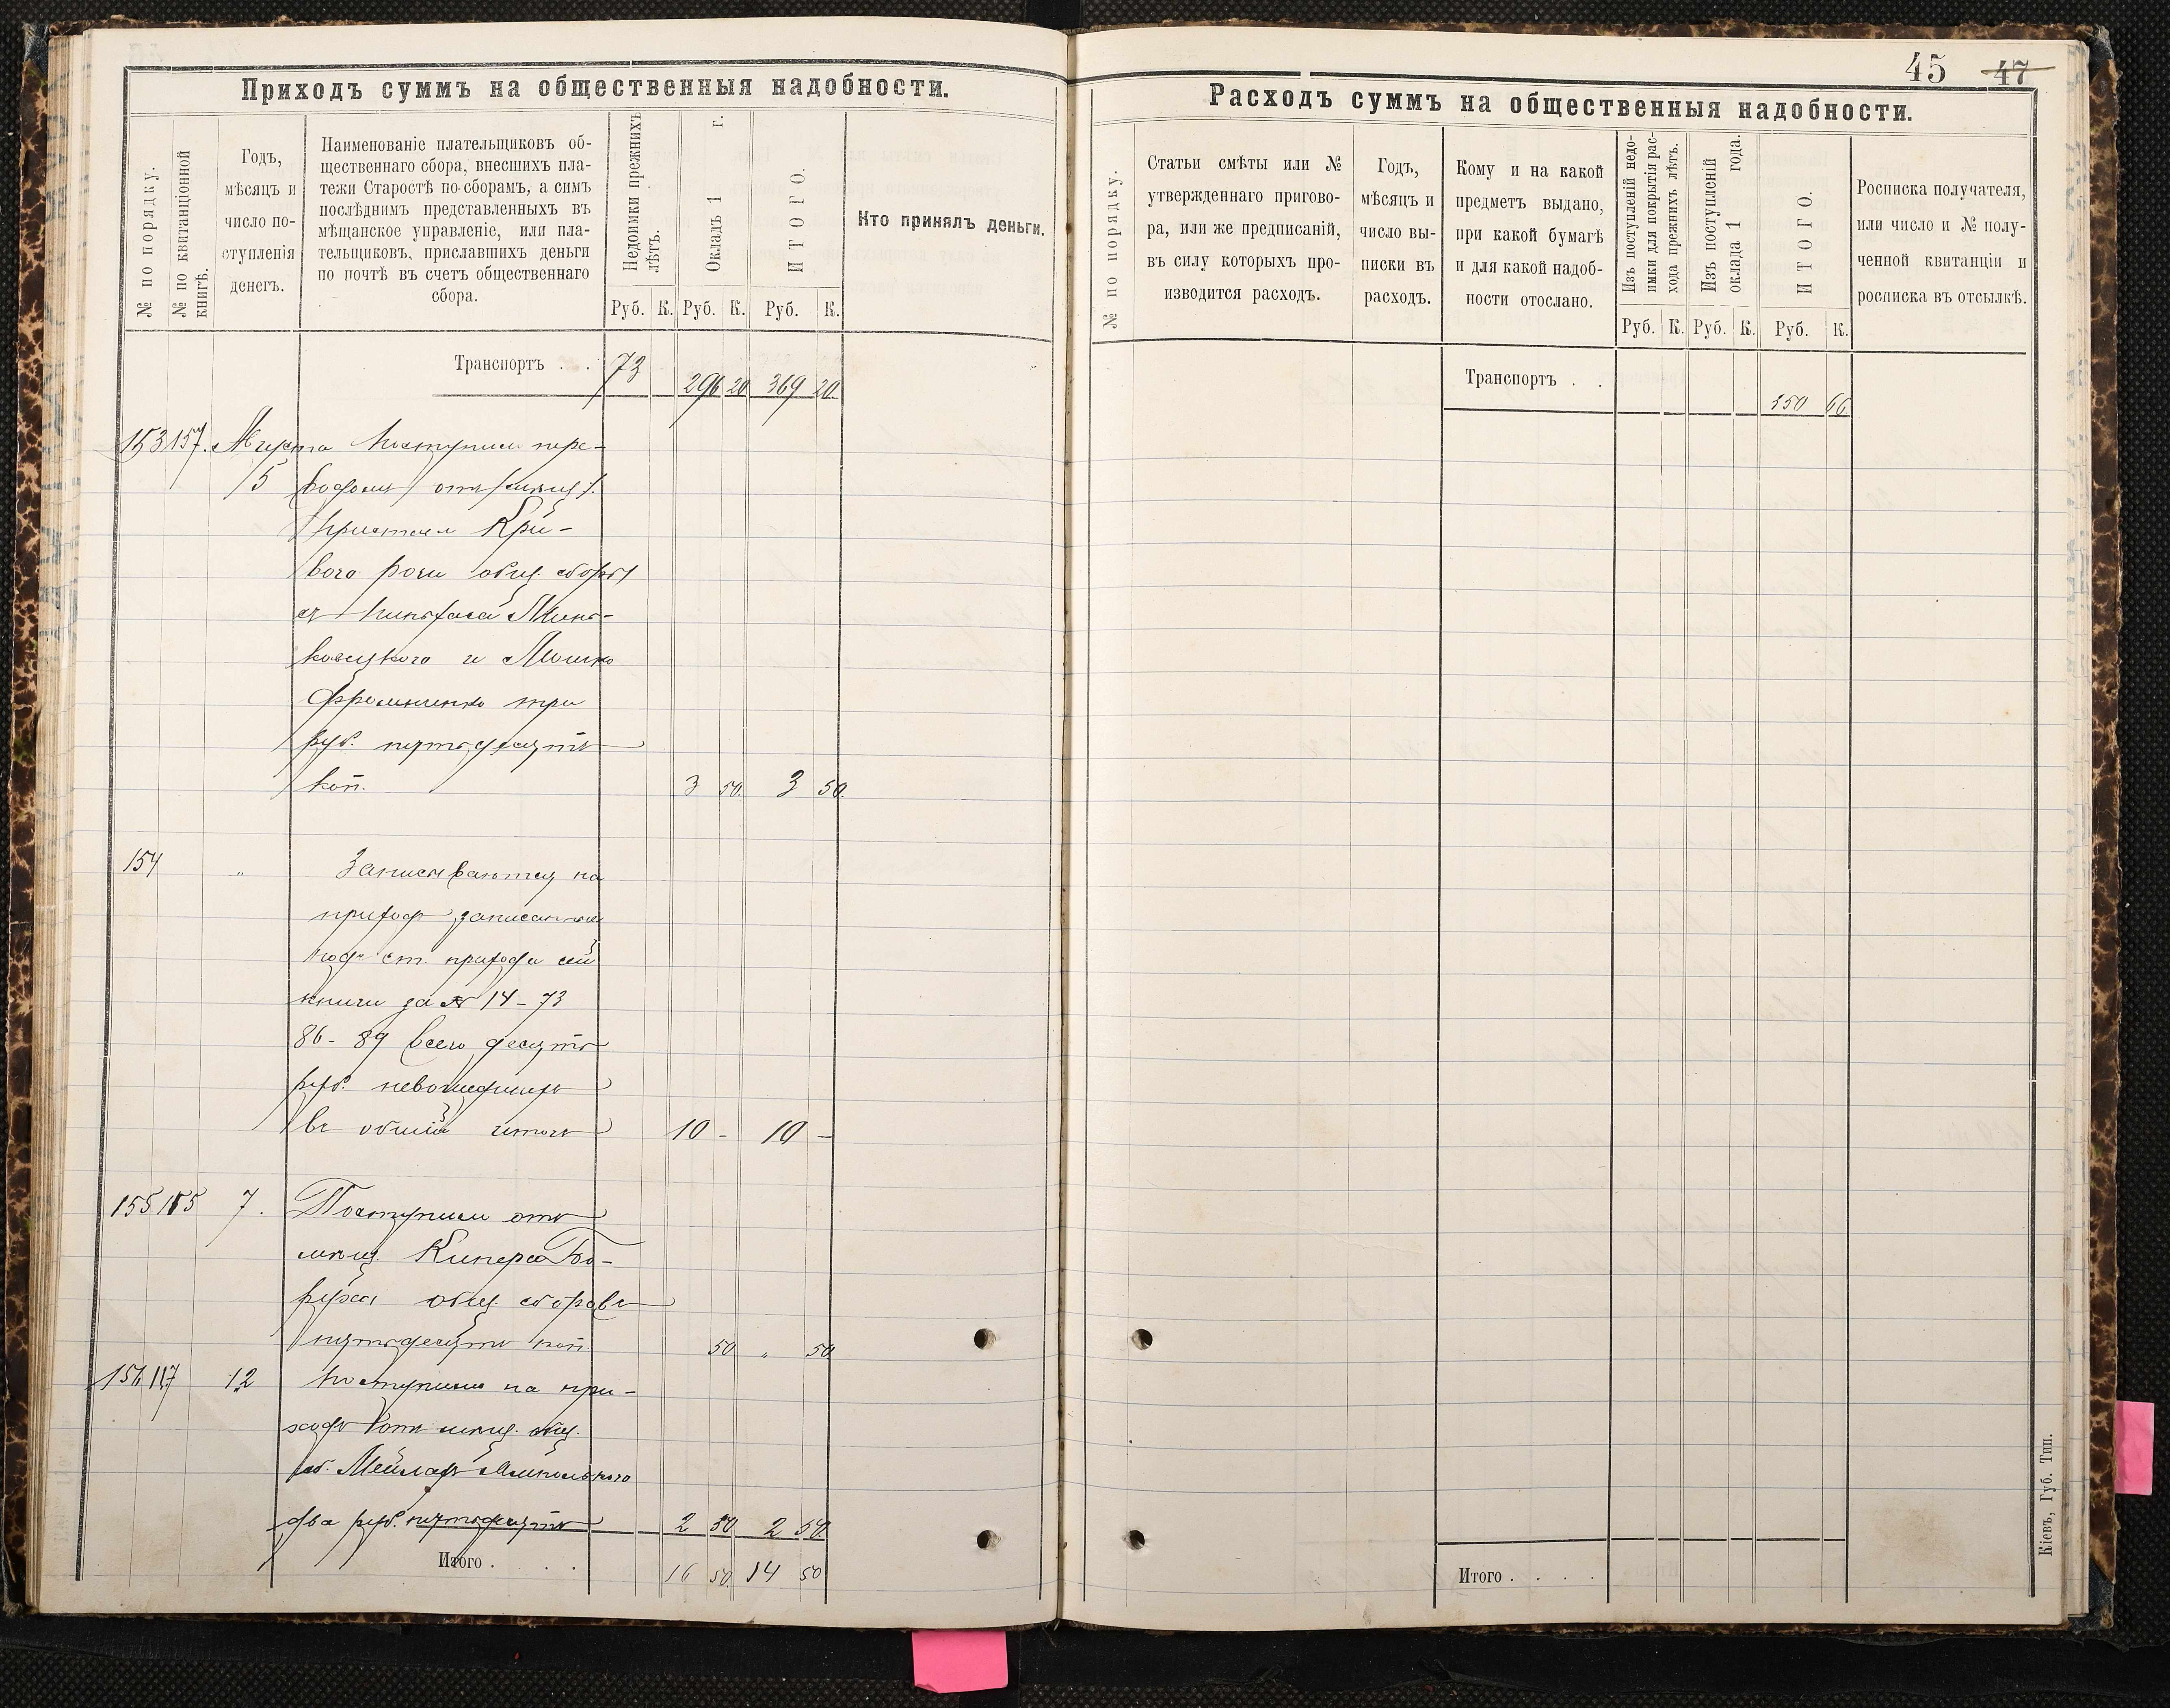 45 47
Приходъ суммъ на общественныя надобности.
№ по порядку.
№ по квитанціонной
книгѣ.
Годъ,
мѣсяцъ и
число по-
ступленія
денегъ.
Наименованіе плательщиковъ об-
щественнаго сбора, внесшихъ пла-
тежи Старостѣ по сборамъ, а симъ
послѣднимъ представленныхъ въ
мѣщанское управленіе, или пла-
тельщиковъ, приславшихъ деньги
по почтѣ въ счетъ общественнаго
сбора.
Недоимки прежнихъ
лѣтъ.
Окладъ 1 г.
ИТОГО.
Кто принялъ деньги.
Руб. К. Руб. К. Руб. К.
Транспортъ . . 73 296 20 369 20
153 157. Августа Поступили пере-
5 водомъ отъ
Пристава Кри-
вого рога общ. сборъ
съ
и Мошко
три
руб. пятьдесятъ
коп. 3 50. 3 50.
154 „ Записываются на
приходъ записанные
подъ ст. прихода сей
книги за № 14 - 73
86 - 89 всего десять
руб. невошедшихъ
въ общій итогъ 10 - 10 -
155 7. Поступили отъ
мѣщ. Кипера Бо-
руха общ. сбора
пятьдесятъ коп. 50 „ 50
156 117 12 Поступили на при-
ходъ отъ мѣщ. общ.
сб.
два руб. пятьдесятъ 2 50 2 50.
Итого . . . 16 50. 14 50
Расходъ суммъ на общественныя надобности.
№ по порядку.
Статьи смѣты или №
утвержденнаго пригово-
ра, или же предписаній,
въ силу которыхъ про-
изводится расходъ.
Годъ,
мѣсяцъ и
число вы-
писки въ
расходъ.
Кому и на какой
предметъ выдано,
при какой бумагѣ
и для какой надоб-
ности отослано.
Изъ поступленій недо-
имки для покрытія рас-
хода прежнихъ лѣтъ.
Изъ поступленій
оклада 1 года.
ИТОГО.
Росписка получателя,
или число и № полу-
ченной квитанціи и
росписка въ отсылкѣ.
Руб. К. Руб. К. Руб. К.
Транспортъ . . 350 66.
Итого . . . .
Кіевъ, Губ. Тип.